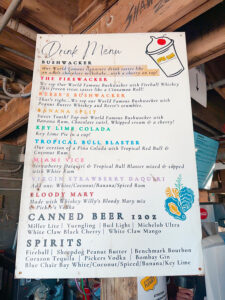 Drink Menu
BUSHWACKER
Our World Famous Signature drink tastes like
an adult chocolate milkshake.. with a cherry on top!
THE FIREWACKER
We top our World Famous Bushwacker with Fireball Whiskey
This frozen treat tastes like a Cinnamon Roll!
BUSHWACKER
That's right.. We top our World Famous Bushwacker with
Peanut Butter Whiskey and Reese's crumbles.
BANANA SPLIT
Sweet Tooth? Top our World Famous Bushwacker with
Banana Rum, Chocolate swirl, Whipped cream & a cherry!
KEY LIME COLADA
Key Lime Pie in a cup!
TROPICAL BULL BLASTER
Our version of a Pina Colada with Tropical Red Bull &
Coconut Rum
MIAMI VICE
Strawberry Daiquiri & Tropical Bull Blaster mixed & topped
with White Rum
VIRGIN STRAWBERRY DAQURI
Add one: White/Coconut/Banana/Spiced Rum
BLOODY MARY
Made with Whiskey Willy's Bloody Mary mix
Pickers Vodka
CANNED BEER 12OZ
Miller Lite | Yuengling | Bud Light | Michelob Ultra
White Claw Black Cherry | White Claw Mango
SPIRITS
Fireball | Shopdog Peanut Butter | Benchmark Bourbon
Corazon Tequila | Pickers Vodka | Bombay Gin
Blue Chair Bay White/Coconut/Spiced/Banana/Key Lime